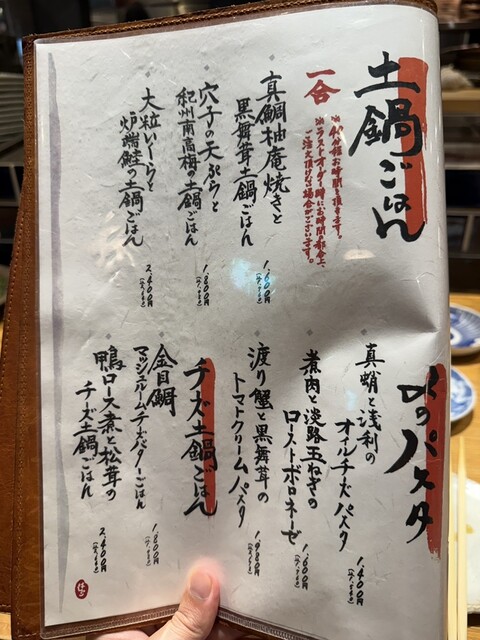 土鍋ごはん
一合
※40分程お時間を頂きます。
※ラストオーダー時にお時間の都合上、
ご注文頂けない場合がございます。
真鯛柚庵焼きと
黒舞茸土鍋ごはん
1,600円
穴子の天ぷらと
紀州南高梅の土鍋ごはん
1,800円
大粒いくらと
炉端鮭の土鍋ごはん
2,400円
〆のパスタ
真蛸と浅利の
オイルチーズパスタ
1,400円
煮肉と淡路玉ねぎの
ローストボロネーゼ
1,600円
渡り蟹と黒舞茸の
トマトクリームパスタ
1,980円
チーズ土鍋ごはん
金目鯛
マッシュルームチーズバターごはん
1,800円
鴨ロース煮と松茸の
チーズ土鍋ごはん
2,400円